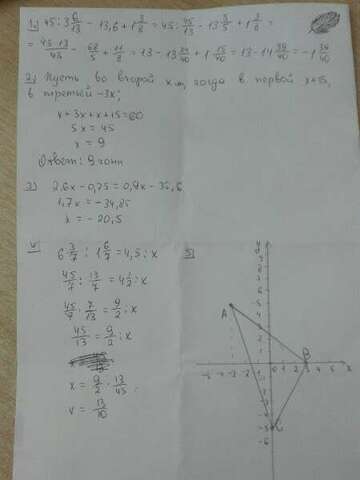 1) 45 : 3 6/13 - 13,6 + 1 3/8 = 45 : 45/13 - 13 3/5 + 1 3/8 =
= 45·13/45 - 68/5 + 11/8 = 13 - 13 24/40 + 1 15/40 = 13 - 14 39/40 = -1 39/40
2) Пусть во второй x м, тогда в первой x+15,
в третьей - 3x;
x + 3x + x + 15 = 60
5x = 45
x = 9
Ответ: 9 тонн
3) 2,6x - 0,75 = 0,9x - 35,6
1,7x = -34,85
x = -20,5
4) 6 3/7 : 1 6/7 = 4,5 : x
45/7 : 13/7 = 4 1/2 : x
45/7 · 7/13 = 9/2 : x
45/13 = 9/2 : x
x = 9/2 · 13/45
x = 13/10
5)
y
A
B
C
x